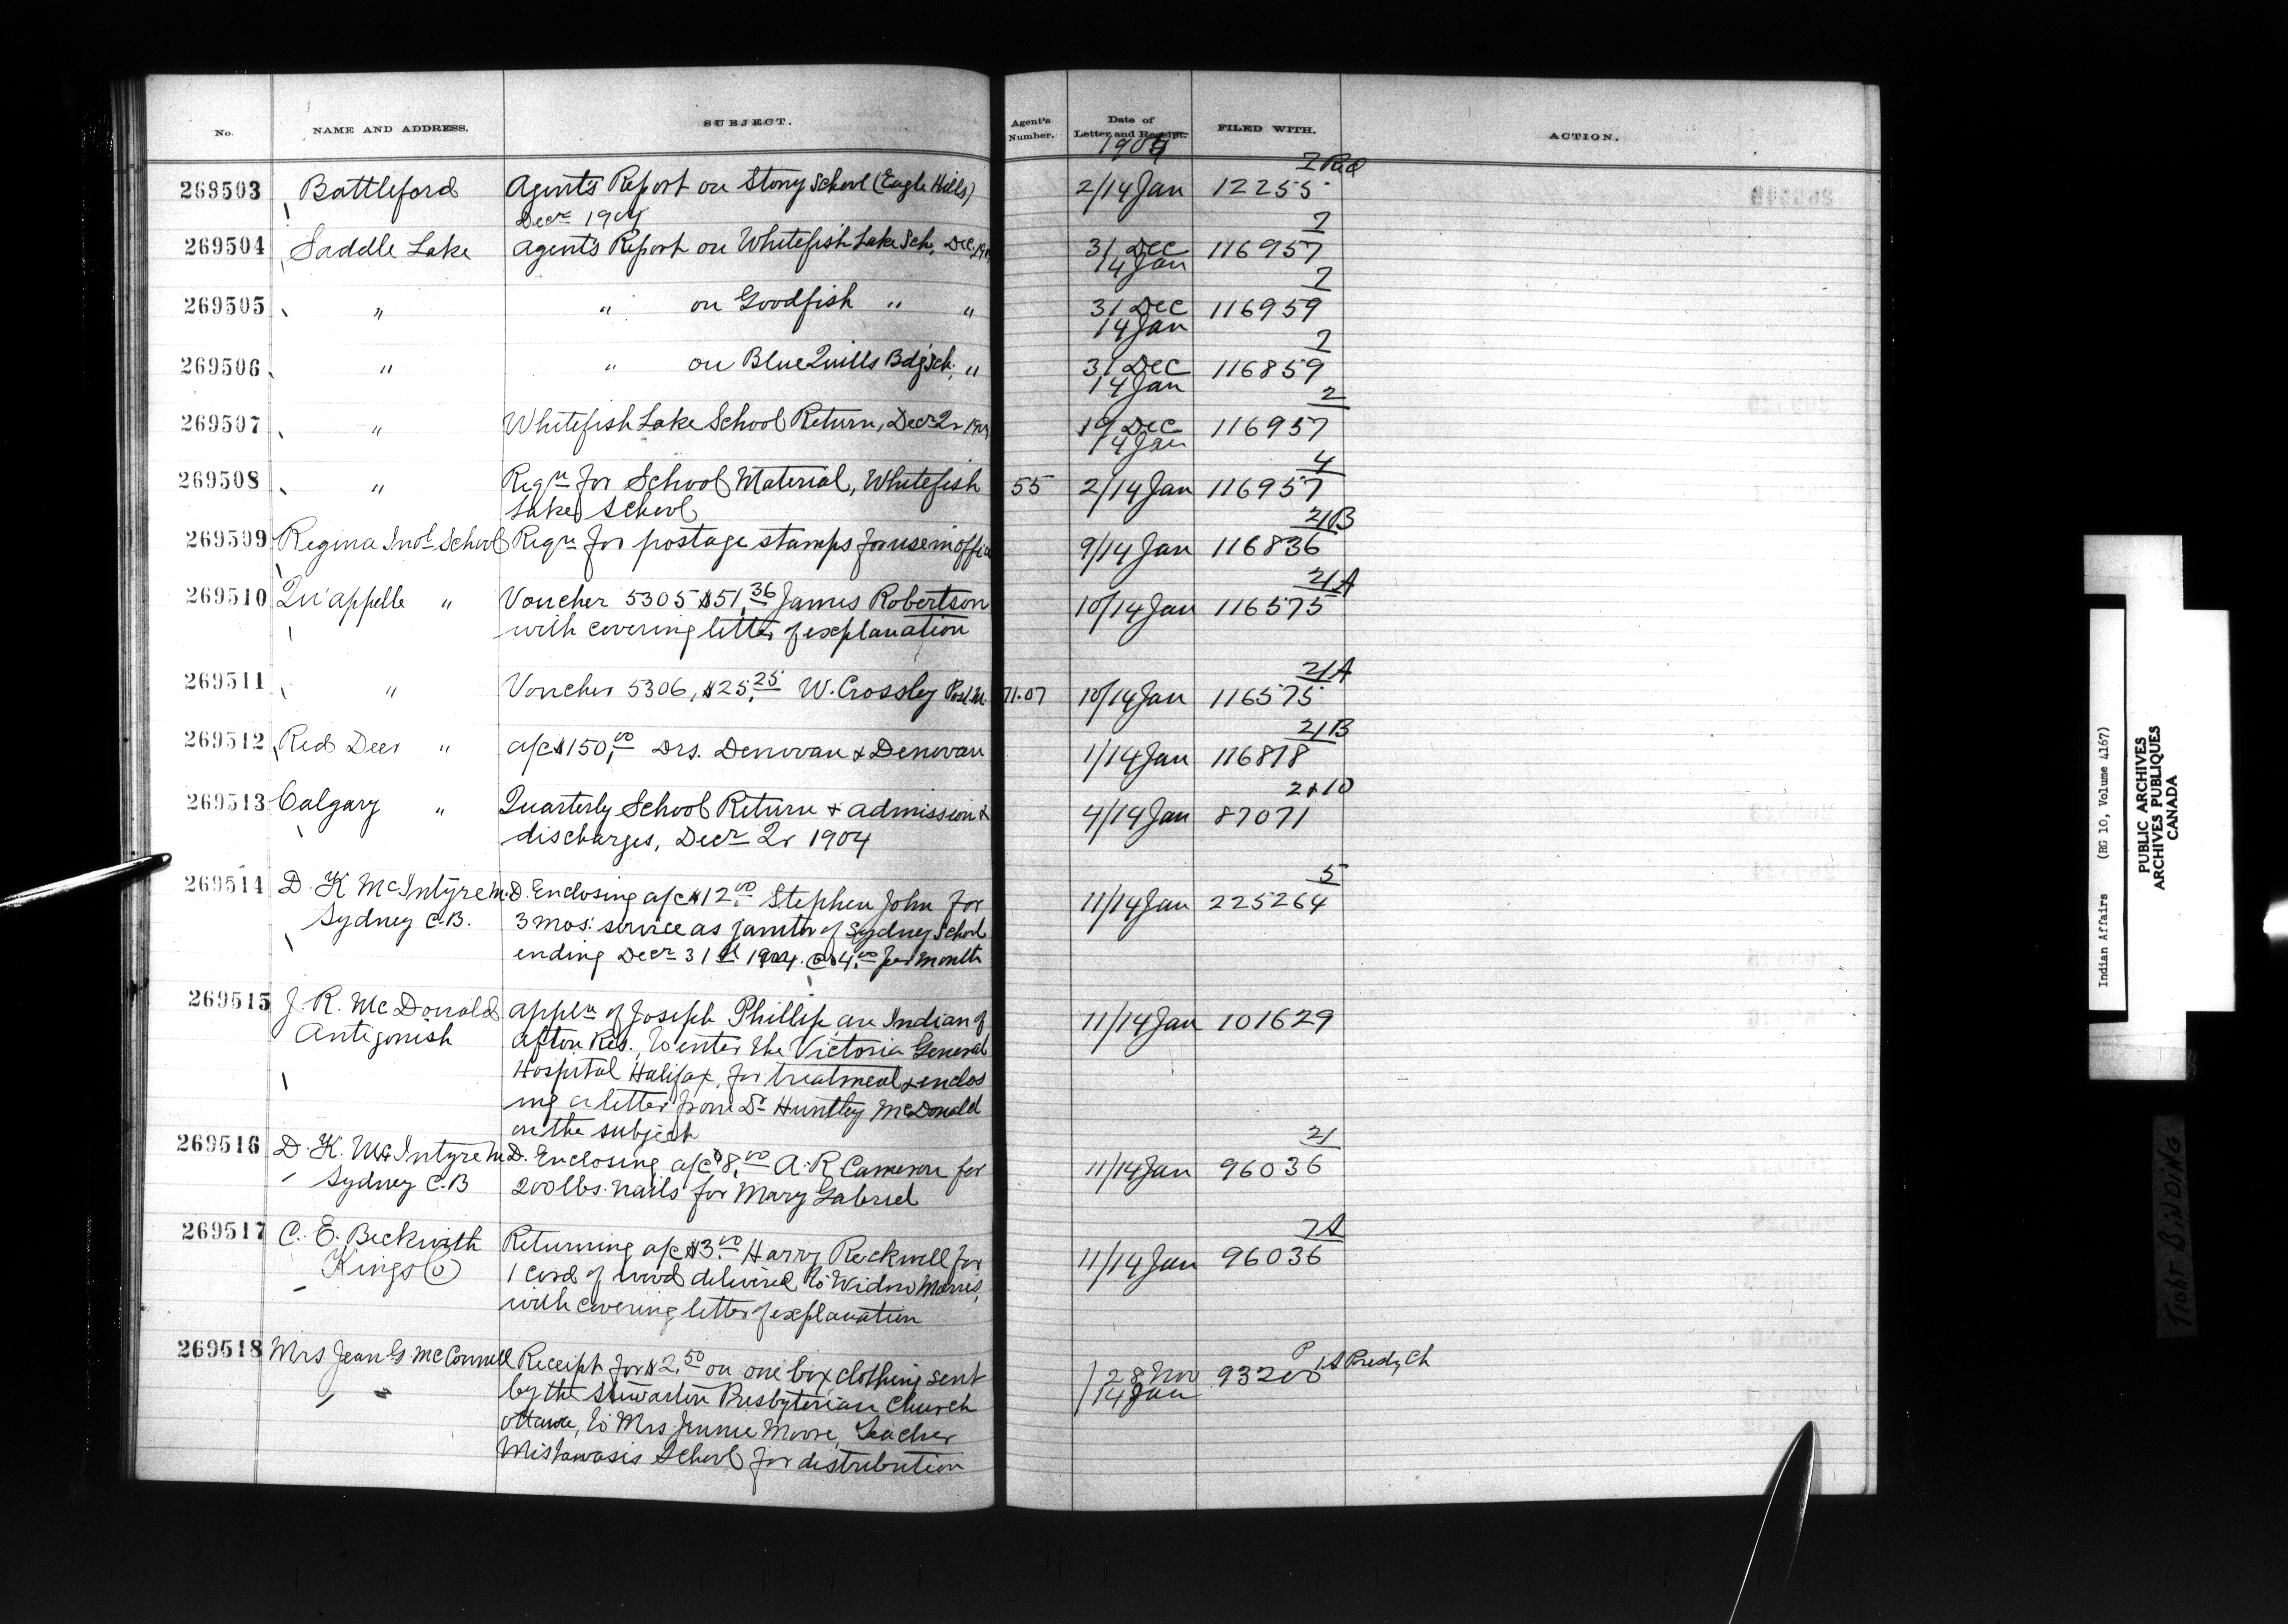 No. NAME AND ADDRESS. SUBJECT. Agent's Number. Date of Letter and Receipt. FILED WITH. ACTION.
1905
7 Red
269503 Battleford Agent's Report on Stony School (Eagle Hills) 2/14 Jan 12255
Decr 1904
7
269504 Saddle Lake Agent's Report on Whitefish Lake Sch. Dec. 1904 31 Dec 116957
14 Jan
7
269505 " " on Goodfish " " 31 Dec 116959
14 Jan
7
269506 " " on Blue Quills Bdg Sch. " 31 Dec 116859
14 Jan
2
269507 " Whitefish Lake School Return, Decr Qr 1904 19 Dec 116957
14 Jan
4
269508 " Reqn for School Material, Whitefish 55 2/14 Jan 116957
Lake School
21B
269509 Regina Indl School Reqn for postage stamps for use in office 9/14 Jan 116836
21A
269510 Qu'appelle " Voucher 5305 $51.36 James Robertson 10/14 Jan 116575
with covering letter of explanation
21A
269511 " Voucher 5306, $25.25 W. Crossley Post. M. 71.07 10/14 Jan 116575
21B
269512 Red Deer " a/c $150.00 Drs. Denovan & Denovan 1/14 Jan 116818
2 & 10
269513 Calgary " Quarterly School Return & admission & 4/14 Jan 87071
discharges, Decr Qr 1904
5
269514 D. K. McIntyre M.D. Enclosing a/c $12.00 Stephen John for 11/14 Jan 225264
Sydney C.B. 3 mos. service as janitor of Sydney School
ending Decr 31st 1904. @ $4.00 per month
269515 J. R. McDonald appln of Joseph Phillip, an Indian of 11/14 Jan 101629
Antigonish Afton Res. to enter the Victoria General
Hospital Halifax, for treatment & enclos
ing a letter from Dr Huntley McDonald
on the subject
21
269516 D. K. McIntyre M.D. Enclosing a/c $8.00 A. R. Cameron for 11/14 Jan 96036
Sydney C.B 200 lbs. nails for Mary Gabriel
7A
269517 C. E. Beckwith Returning a/c $3.00 Harry Rockwell for 11/14 Jan 96036
Kings Co 1 cord of wood delivered to Widow Morris,
with covering letter of explanation
269518 Mrs Jean G. McConnell Receipt for $2.50 on one box clothing sent 28 Nov 93200
14 Jan
by the Stewarton Presbyterian Church
Ottawa, to Mrs Jennie Moore, Teacher
Mistawasis School for distribution
Indian Affairs (RG 10, Volume 4167)
PUBLIC ARCHIVES
ARCHIVES PUBLIQUES
CANADA
TIGHT BINDING